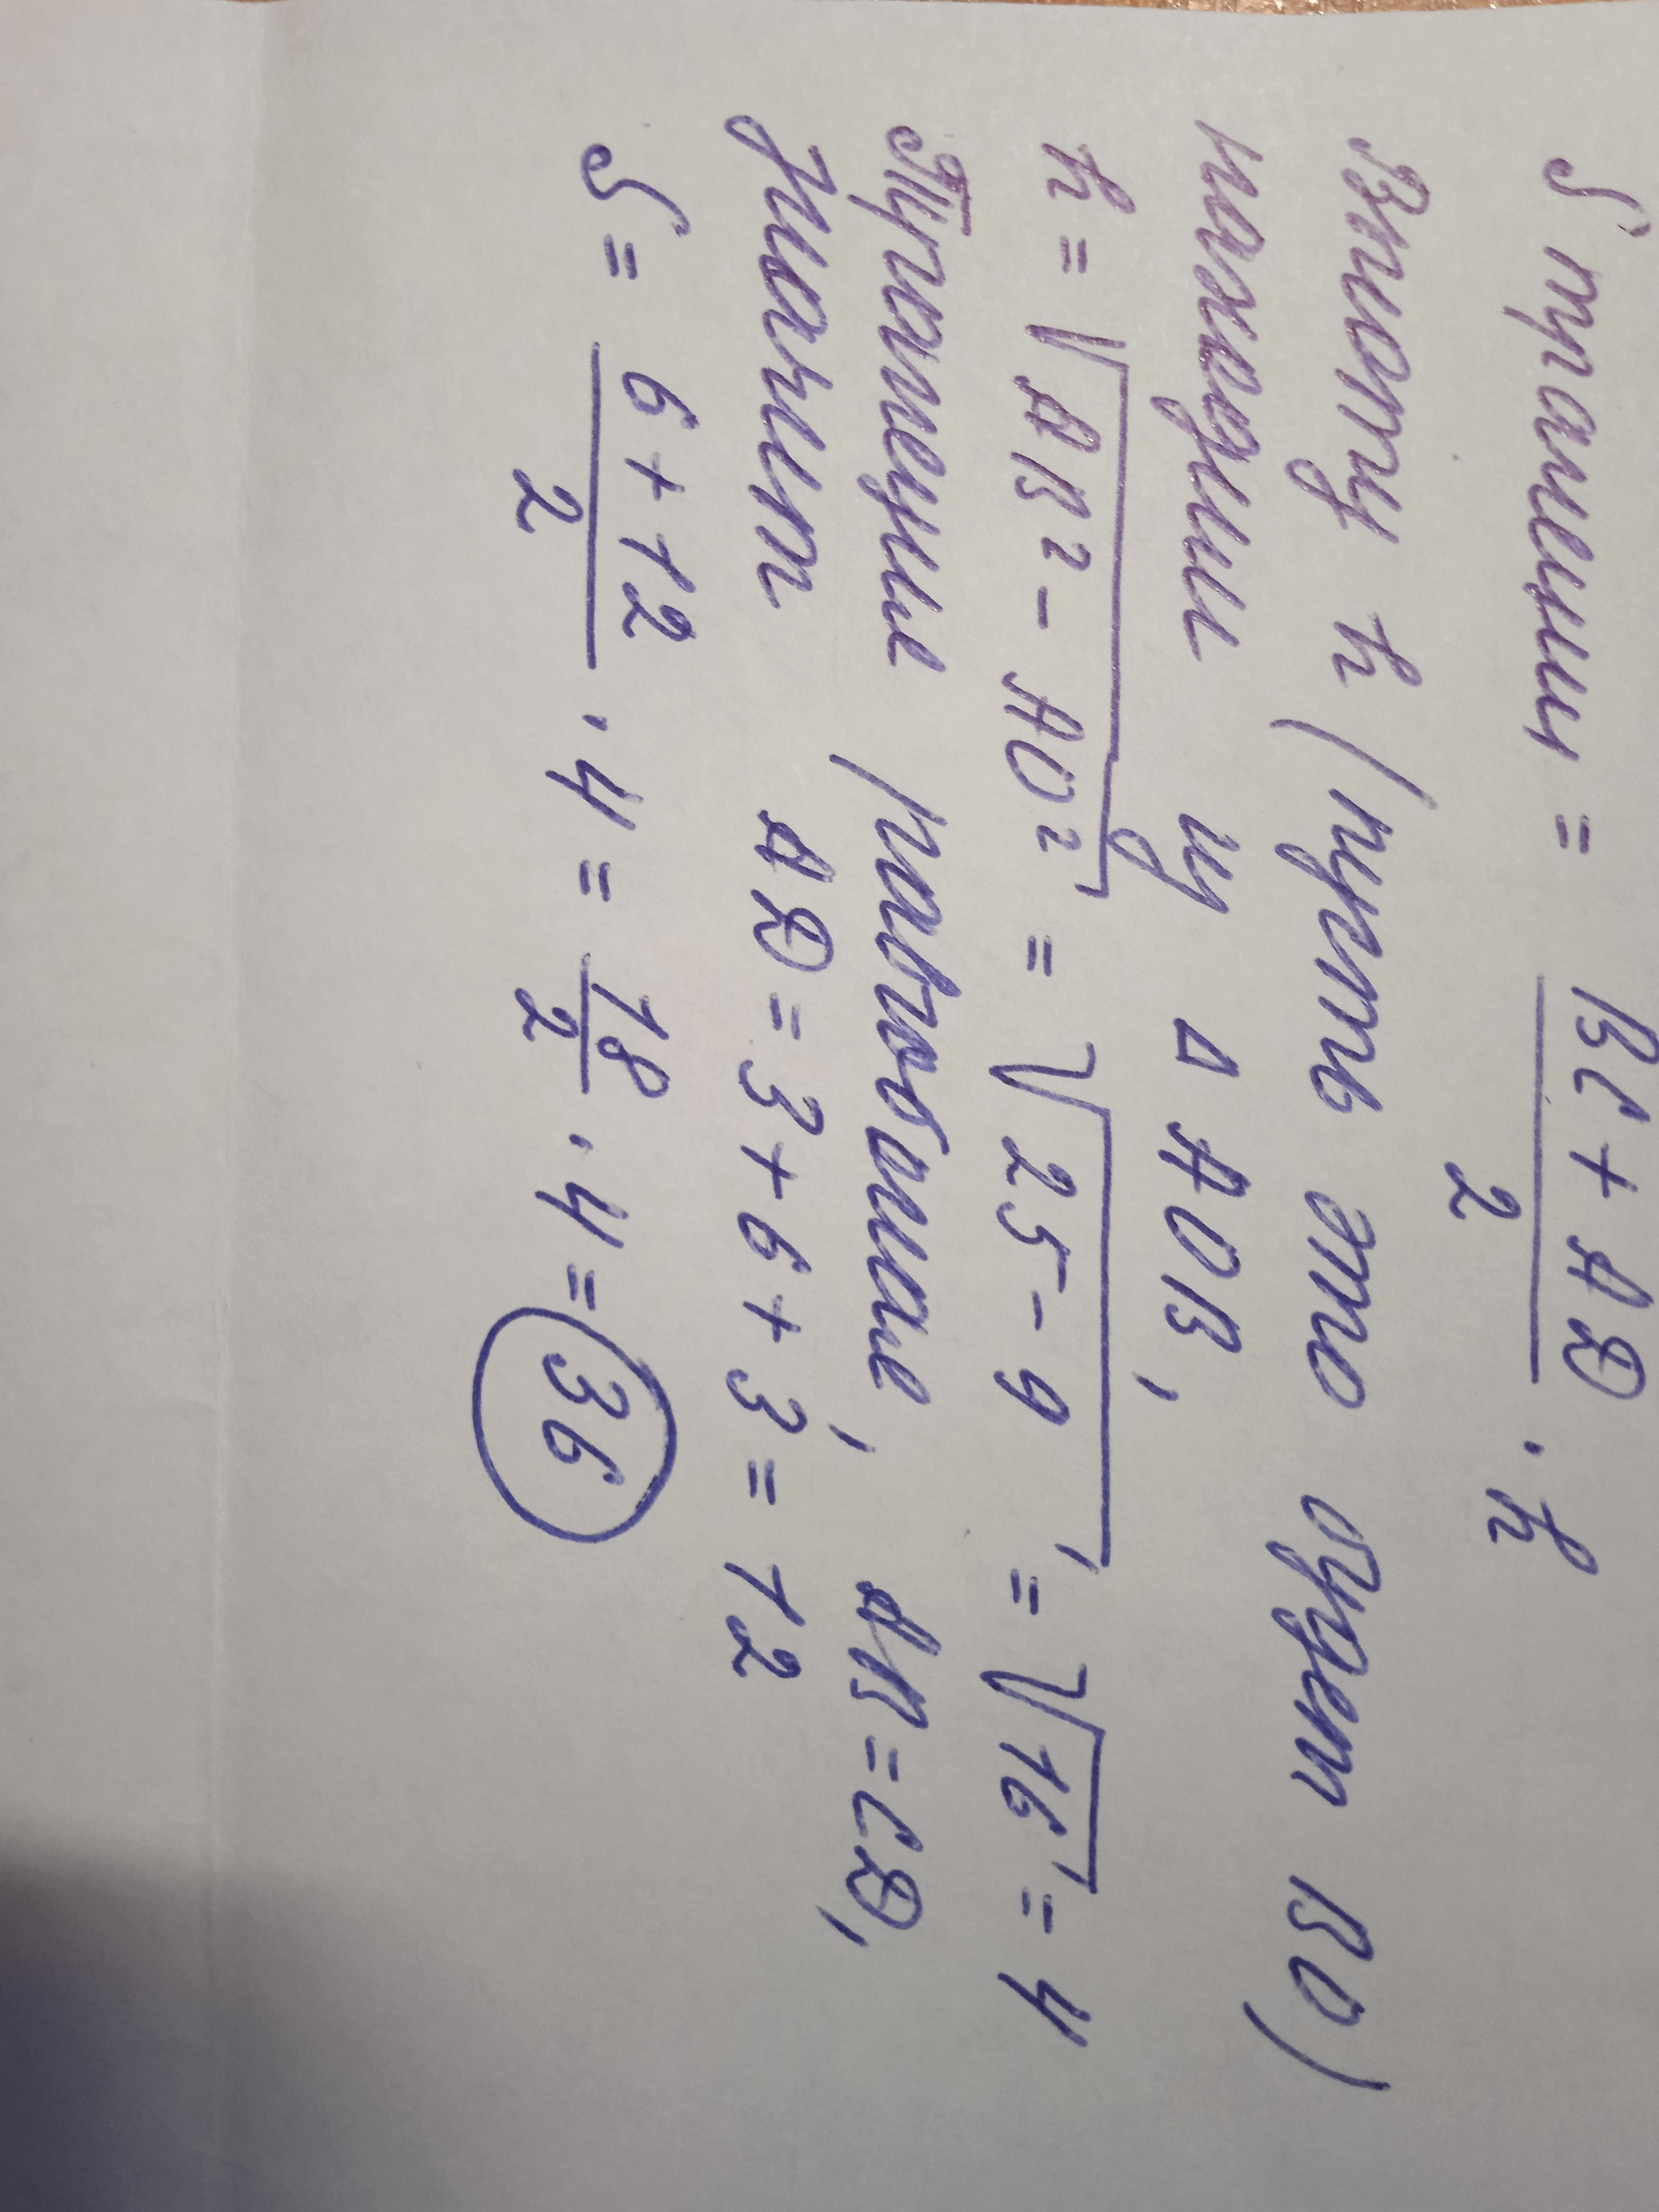 S трапеции = BC + AD / 2 · h
Высоту h (пусть это будет BO)
находим из △ AOB,
h = √AB² - AO² = √25 - 9 = √16 = 4
Трапеция равнобокая, AB = CD,
значит AD = 3 + 6 + 3 = 12
S = 6 + 12 / 2 · 4 = 18 / 2 · 4 = 36